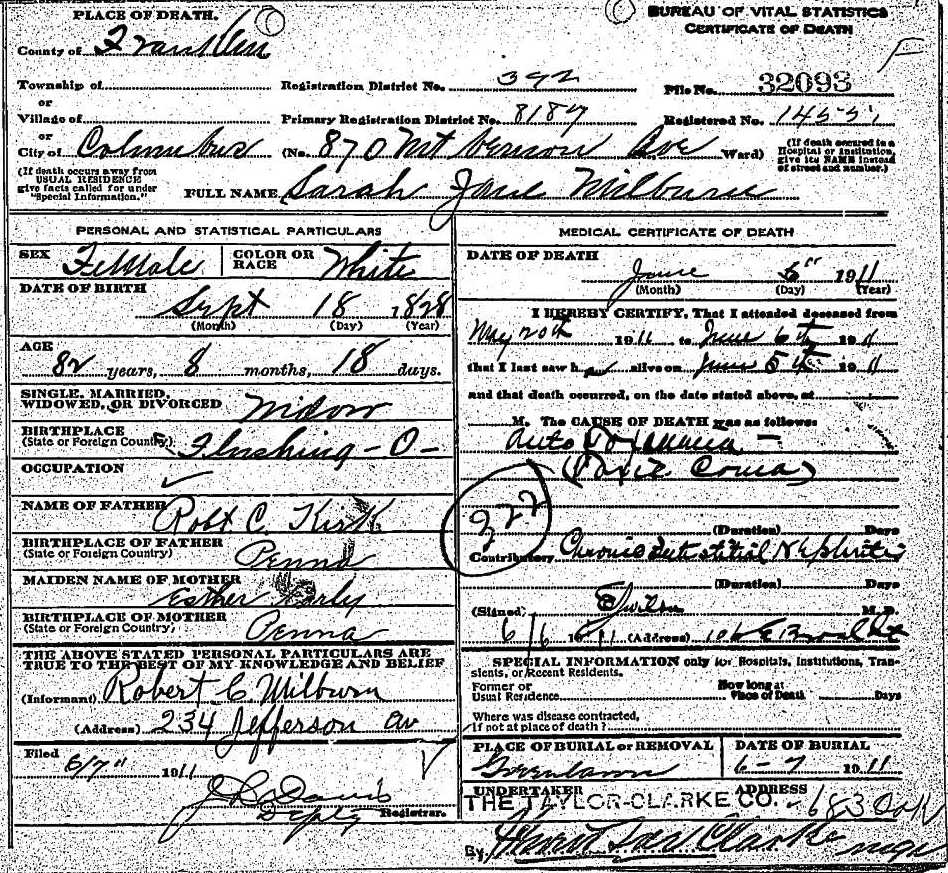 PLACE OF DEATH.
BUREAU OF VITAL STATISTICS
CERTIFICATE OF DEATH
County of Franklin
Township of Registration District No. 392 File No. 32093
or
Village of Primary Registration District No. 8187 Registered No.
or
City of Columbus (No. 870 Mt Vernon Ave Ward)
(If death occurred in a Hospital or Institution, give its NAME instead of street and number.)
(If death occurs away from USUAL RESIDENCE give facts called for under "Special Information.")
FULL NAME Sarah Jane Milburn
PERSONAL AND STATISTICAL PARTICULARS
SEX Female COLOR OR RACE White
DATE OF BIRTH
Sept 18 1828
(Month) (Day) (Year)
AGE
82 years, 8 months, 18 days.
SINGLE, MARRIED,
WIDOWED, OR DIVORCED Widow
BIRTHPLACE
(State or Foreign Country) Flushing - O -
OCCUPATION
NAME OF FATHER Robt C. Kirk
BIRTHPLACE OF FATHER
(State or Foreign Country) Penna
MAIDEN NAME OF MOTHER
Esther
BIRTHPLACE OF MOTHER
(State or Foreign Country) Penna
THE ABOVE STATED PERSONAL PARTICULARS ARE
TRUE TO THE BEST OF MY KNOWLEDGE AND BELIEF
(Informant) Robert C. Milburn
(Address) 234 Jefferson av
Filed
6/7" 1911
J Davis
Depty Registrar.
MEDICAL CERTIFICATE OF DEATH
DATE OF DEATH
June 6" 1911
(Month) (Day) (Year)
I HEREBY CERTIFY, That I attended deceased from
May 20th 1911 to June 6th 1911
that I last saw her alive on June 5th 1911
and that death occurred, on the date stated above, at
M. The CAUSE OF DEATH was as follows:
Auto Toxaemia -
Coma)
322
(Duration) Days
Contributory Chronic Interstitial Nephritis
(Duration) Days
(Signed) Wilson M.D.
6/6 1911 (Address) 106 E Broad St
SPECIAL INFORMATION only for Hospitals, Institutions, Tran-
sients, or Recent Residents.
Former or How long at
Usual Residence Place of Death Days
Where was disease contracted,
If not at place of death?
PLACE OF BURIAL or REMOVAL DATE OF BURIAL
Greenlawn 6-7 1911
UNDERTAKER ADDRESS
THE TAYLOR-CLARKE CO. 683 Oak
By Clarke